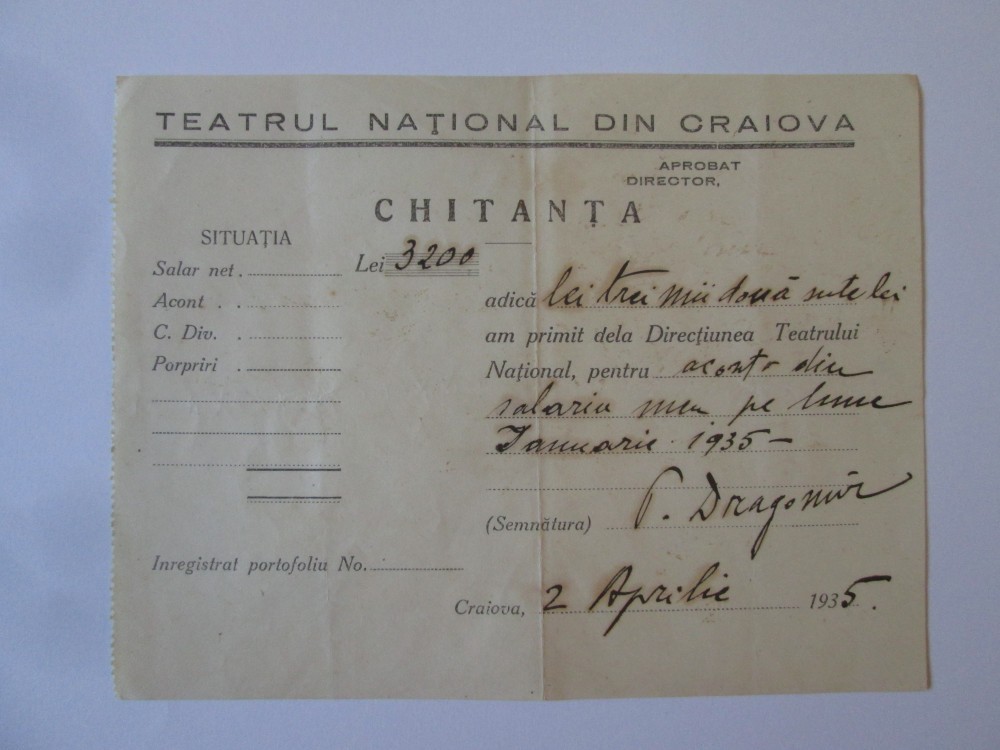 TEATRUL NAŢIONAL DIN CRAIOVA
APROBAT
DIRECTOR,
CHITANŢA
SITUAŢIA
Salar net.
Acont . .
C. Div. .
Porpriri .
Lei 3200
adică lei trei mii două sute lei
am primit dela Direcţiunea Teatrului
Naţional, pentru aconto din
salariu meu pe luna
Ianuarie 1935 –
(Semnătura) P. Dragomir
Inregistrat portofoliu No.
Craiova, 2 Aprilie 1935.